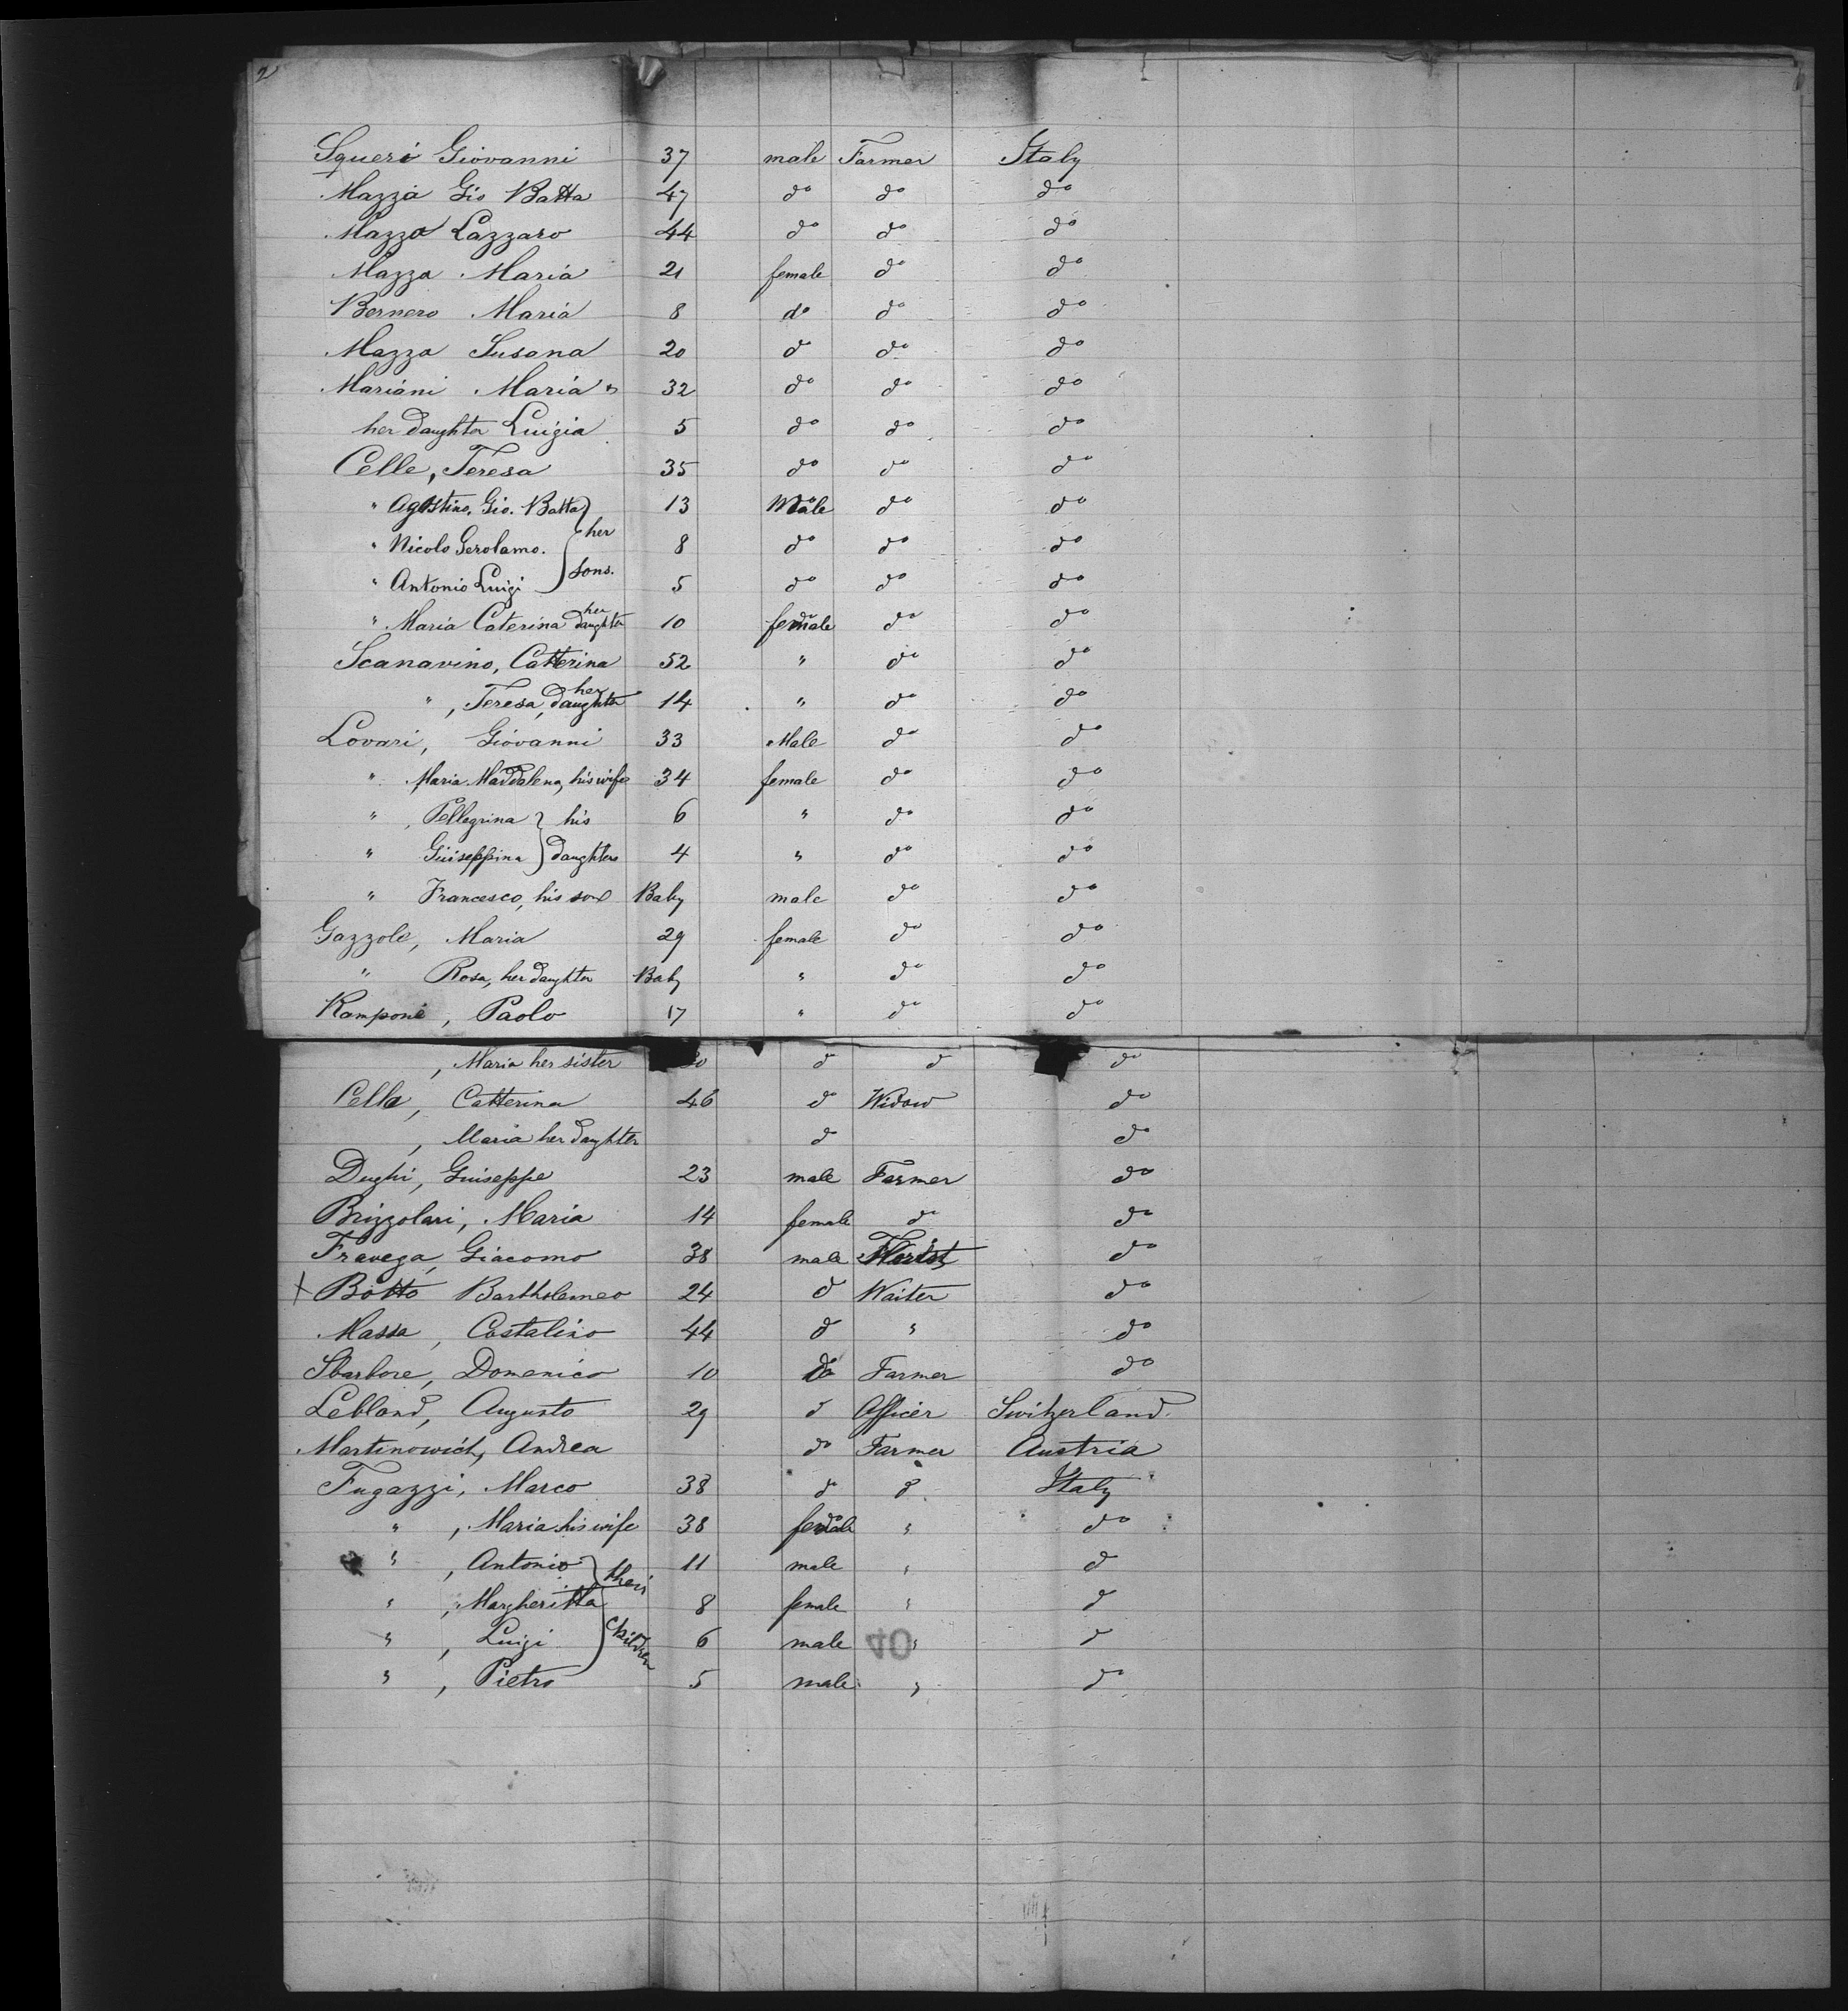 2
Squeri Giovanni 37 male Farmer Italy
Mazza Gio Batta 47 do do do
Mazza Lazzaro 44 do do do
Mazza Maria 21 female do do
Bernero Maria 8 do do do
Mazza Susana 20 do do do
Mariani Maria 32 do do do
her daughter Luigia 5 do do do
Celle, Teresa 35 do do do
" Agostino, Gio. Batta 13 Male do do
" Nicolo Gerolamo. her 8 do do do
" Antonio Luigi sons. 5 do do do
" Maria Caterina her daughter 10 female do do
Scanavino, Catterina 52 " do do
" , Teresa, her daughter 14 " do do
Lovari, Giovanni 33 Male do do
" Maria Maddalena, his wife 34 female do do
" , Pellegrina his 6 " do do
" Giuseppina daughters 4 " do do
" Francesco, his son Baby male do do
Gazzole, Maria 29 female do do
" Rosa, her daughter Baby " do do
Rampone, Paolo 17 " do do
, Maria her sister do do do
Cella, Catterina 46 do Widow do
, Maria her daughter do do
Dughi, Giuseppe 23 male Farmer do
Brizzolari, Maria 14 female do do
Fravega, Giacomo 38 male Florist do
X Botto Bartholomeo 24 do Waiter do
Massa, Costalino 44 do " do
Sbarbore, Domenico 10 do Farmer do
Lebland, Augusto 29 do Officer Switzerland.
Martinowich, Andrea do Farmer Austria
Fugazzi, Marco 38 do do Italy
" , Maria his wife 38 female " do
" , Antonio their 11 male " do
" , Margheritta 8 female " do
" , Luigi children 6 male " do
40
" , Pietro 5 male " do